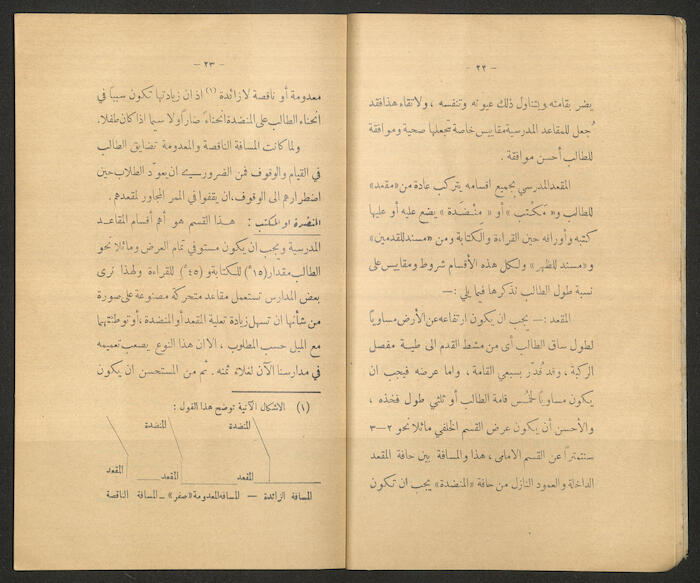 — ٢٢ —
يضر بقامته ويتناول ذلك عيونه وتنفسه ، ولاتقاء هذا فقد
جُعل للمقاعد المدرسية مقاييس خاصة تجعلها صحية وموافقة
للطالب أحسن موافقة .
المقعد المدرسي بجميع اقسامه يتركب عادة من «مقعد»
للطالب و« مَكتب » أو « منْضَدة » يضع عليه أو عليها
كتبه وأوراقه حين القراءة والكتابة ومن «مسند للقدمين»
و«مسند للظهر» ولكل هذه الأقسام شروط ومقاييس على
نسبة طول الطالب نذكرها فيما يلي : —
المقعد : — يجب ان يكون ارتفاعه عن الأرض مساوياً
لطول ساق الطالب أى من مشط القدم الى طيـة مفصل
الركبة ، وقد قُدّر بسبعي القامة ، واما عرضه فيجب ان
يكون مساوياً لخُمس قامة الطالب أو ثلثي طول فخذه ،
والأحسن أن يكون عرض القسم الخلفي مائلا نحو ٢—٣
سنتمتراً عن القسم الامامى ، هذا والمسافة بين حافة المقعد
الداخلة والعمود النازل من حافة «المنضدة» يجب ان تكون
— ٢٣ —
معدومة أو ناقصة لا زائدة (١) اذ ان زيادتها تكون سبباً في
انحناء الطالب على المنضدة انحناءً ضاراً ولا سيما اذا كان طفلا.
ولما كانت المسافة الناقصة والمعدومة تضايق الطالب
في القيام والوقوف فمن الضرورـي ان يعوّد الطلاب حين
اضطرارهم الى الوقوف ، ان يقفوا في الممر المجاور لمقعدهم .
المنضدة او المكتب : هـذا القسم هو أهم أقسام المقاعـد
المدرسية ويجب ان يكون مستو في تمام العرض ومائلا نحو
الطالب مقدار (١٥°) للكتابة و (٤٥°) للقراءة ولهذا نرى
بعض المدارس تستعمل مقاعد متحركة مصنوعة على صورة
من شأنها ان تسهل زيادة تعلية المقعد أو المنضدة ، أو توطئتهما
مع الميل حسب المطلوب ، الا ان هذا النوع يصعب تعميمه
في مدارسنا الآن لغلاء ثمنه . ثم من المستحسن ان يكون
(١) الاشكال الآتية توضح هذا القول :
المنضدة
المنضدة
المقعد
المقعد
المقعد
المسافة الزائدة — المسافة المعدومة «صفر» — المسافة الناقصة